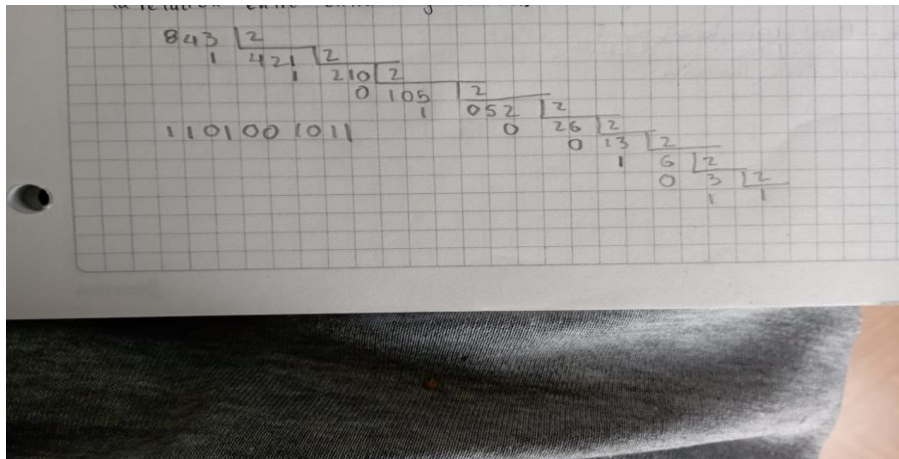 843 2
1 421 2
1 210 2
0 105 2
1 052 2
1101001011 0 26 2
0 13 2
1 6 2
0 3 2
1 1